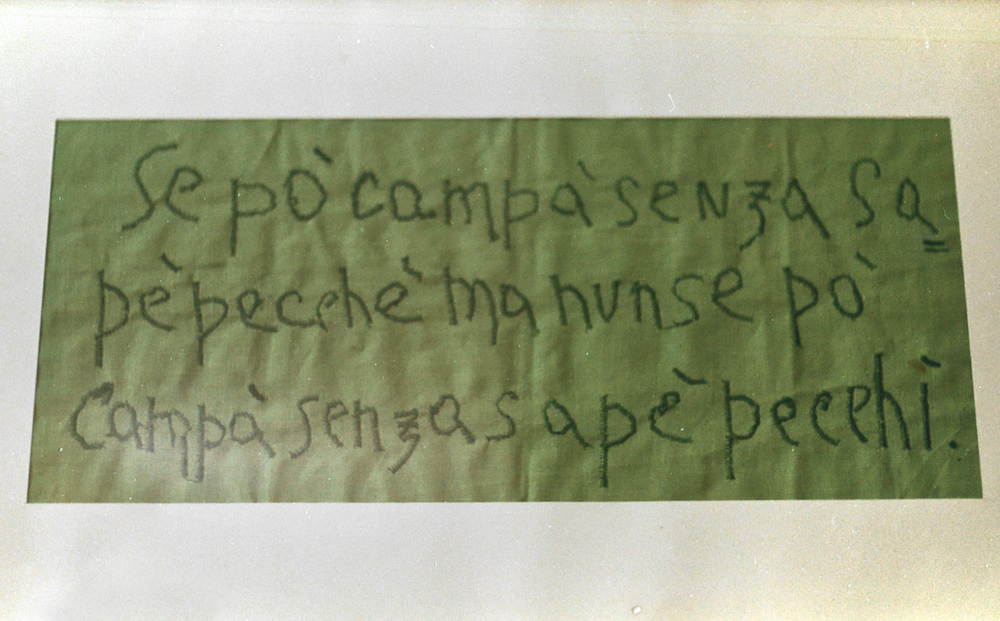 Se pò campà senza sa=
pè pecchè ma nun se pò
campà senza sapè pecchì.